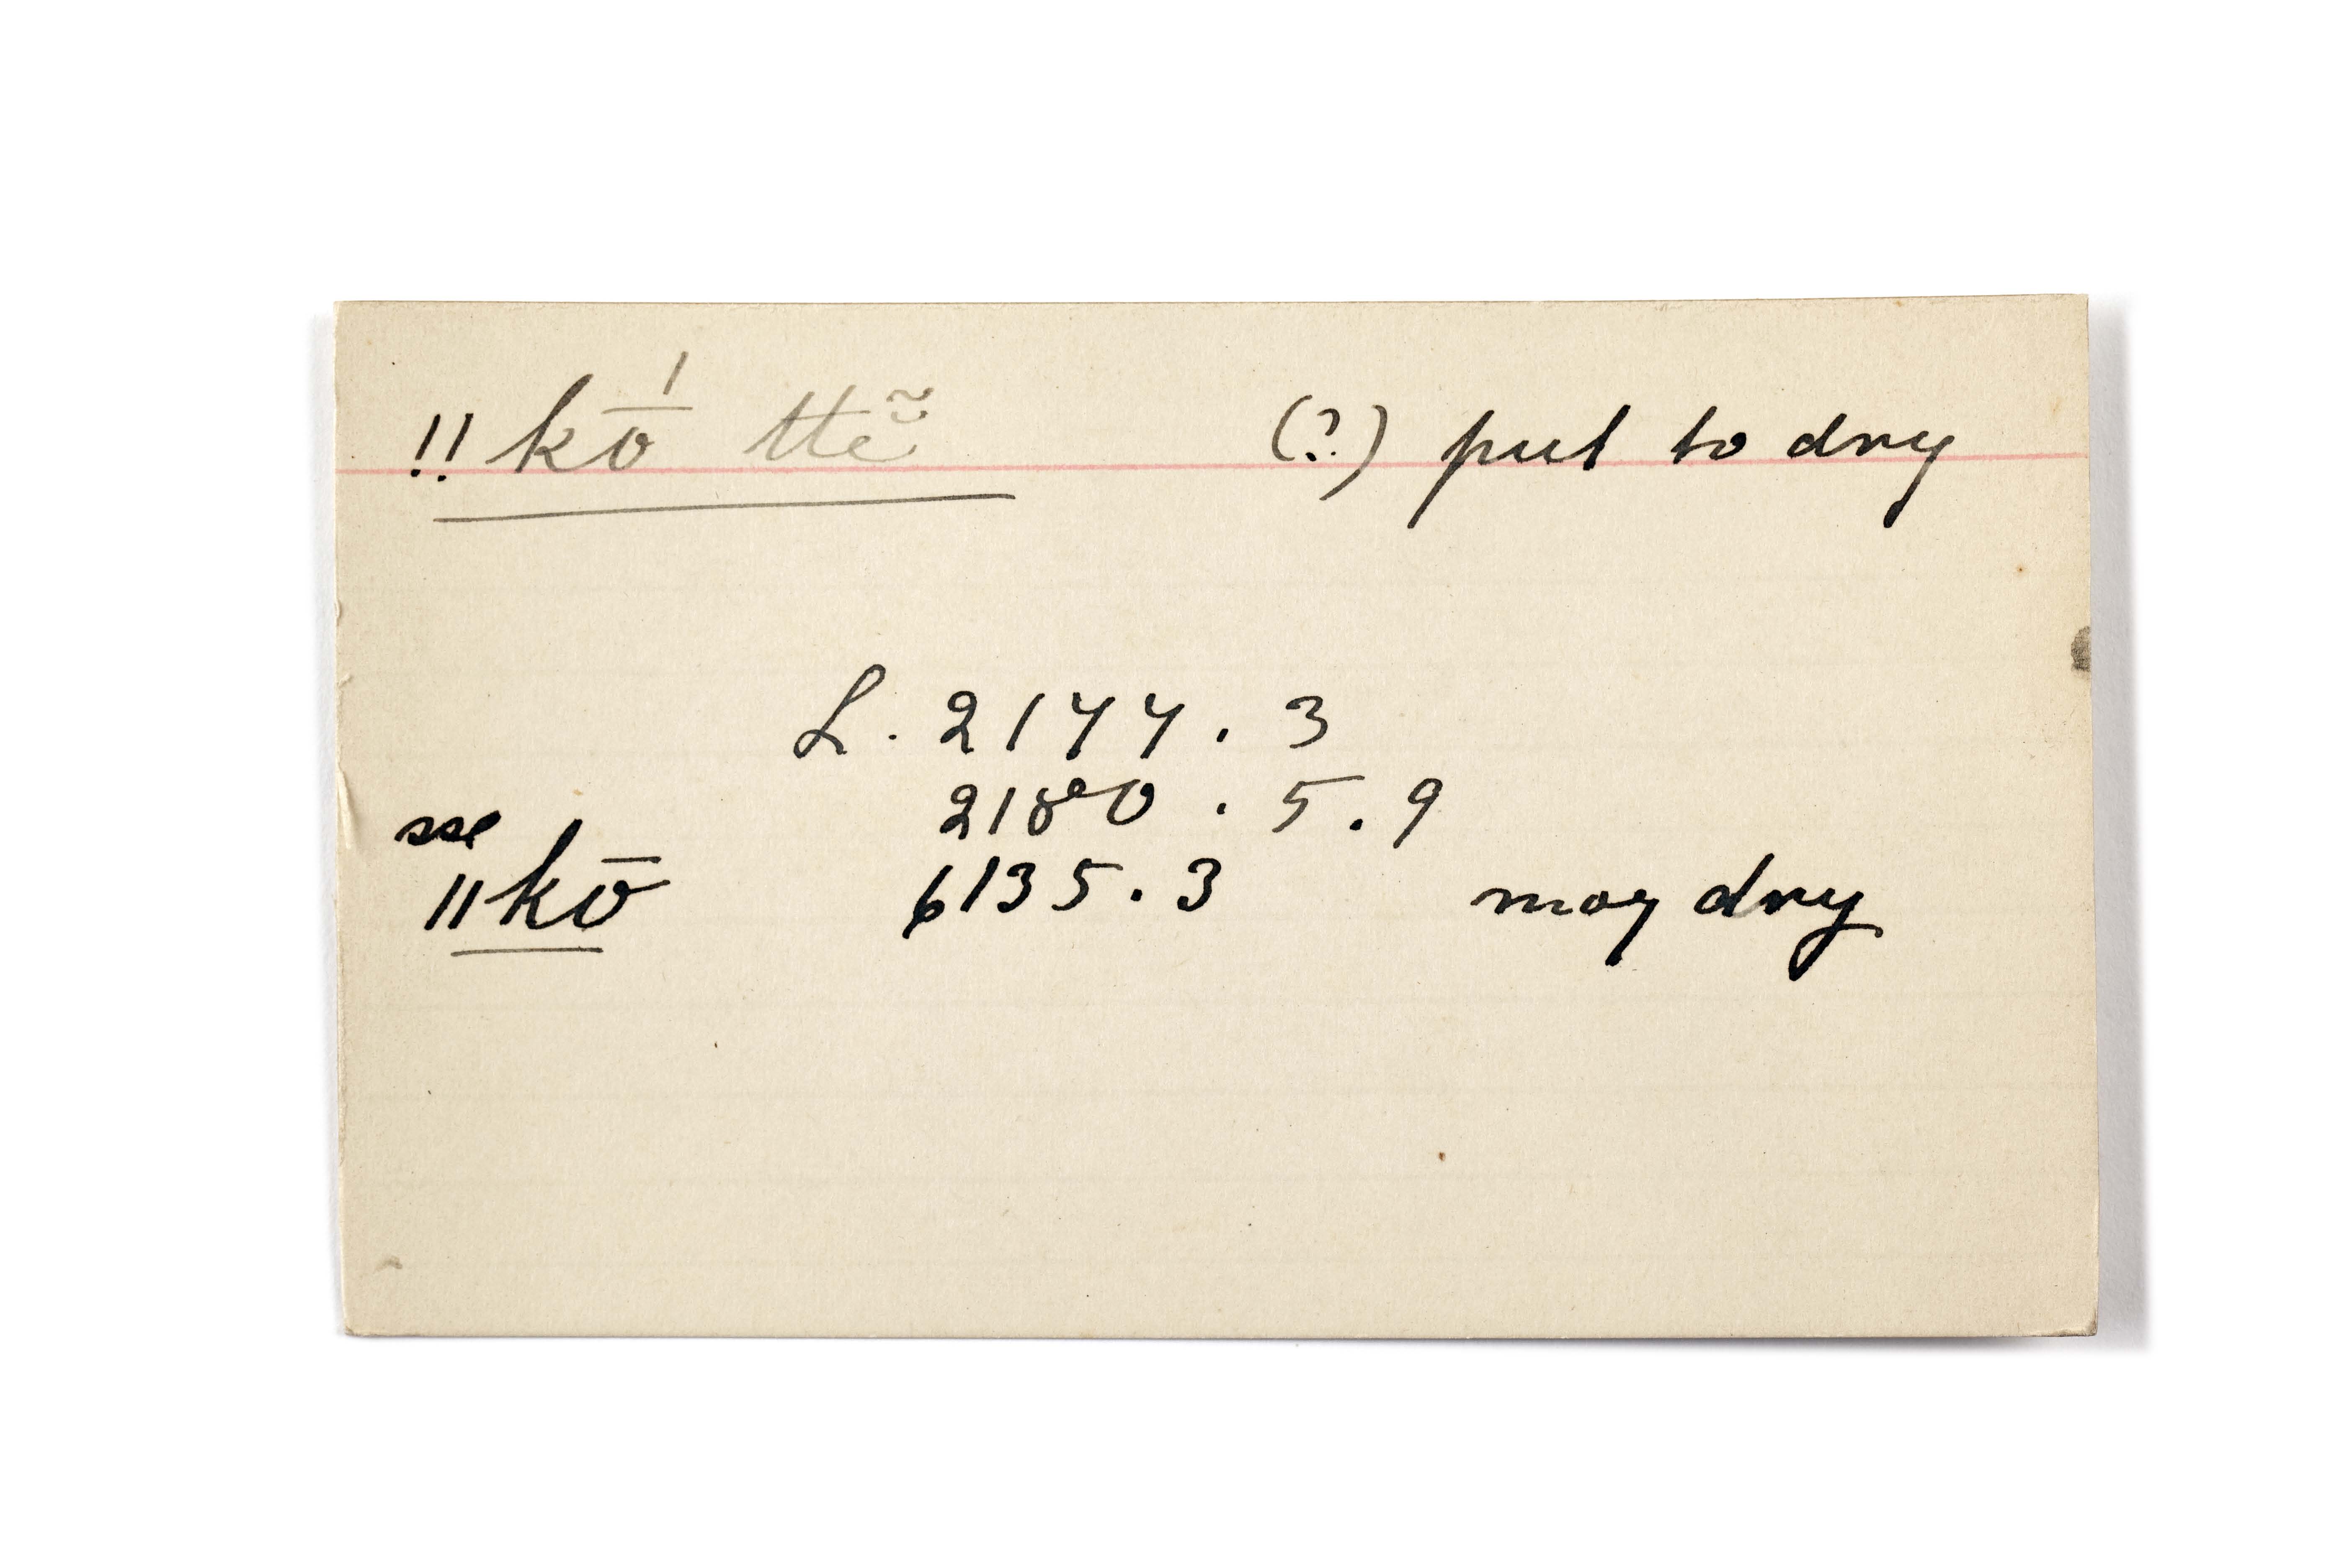 !!kṓ ttẽ̆ (?) put to dry
L. 2144. 3
2180. 5. 9
sse
ǁkō 6135. 3 may dry